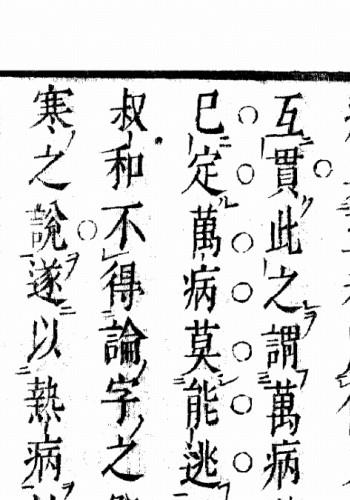 互貫此之謂萬病
已定萬病莫能逃
叔和不得論字之
寒之說遂以熱病